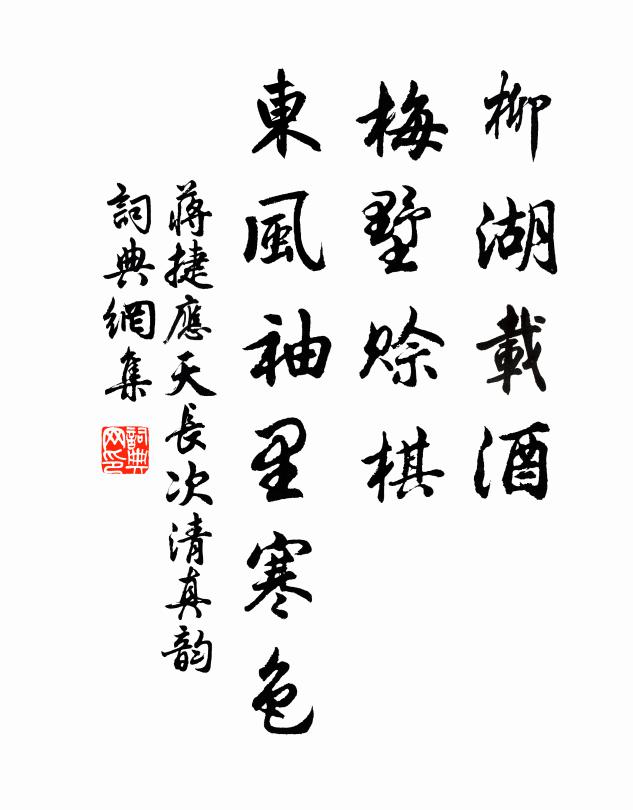 柳湖載酒
梅墅赊棋
東風袖里寒色
蔣捷應天長次清真韵
詞典網集
詞典网印